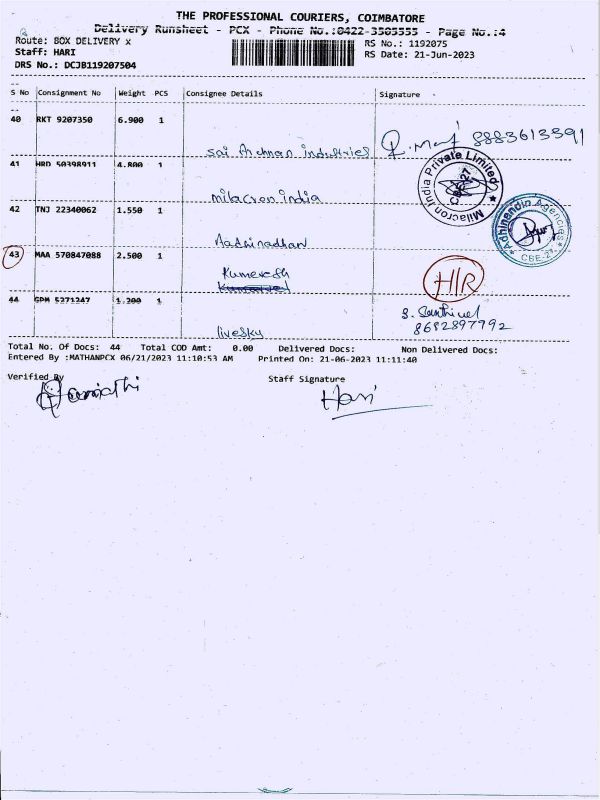 THE PROFESSIONAL COURIERS, COIMBATORE
Delivery Runsheet - PCX - Phone No.:0422-3505555 - Page No.:4
Route: BOX DELIVERY x
RS No.: 1192075
Staff: HARI
RS Date: 21-Jun-2023
DRS No.: DCJB119207504
S No Consignment No Weight PCS Consignee Details Signature
40 RKT 9207350 6.900 1
Sai Archnan industries 8883613391
41 HRD 50398911 4.800 1
milacron india
Milacron India Private Limited
42 TNJ 22340062 1.550 1
Aadhinadhan
Aadhinandin Agencies
CBE-27
43 MAA 570847088 2.500 1
Kumaresh
H/R
44 GPM 5271247 1.200 1
S. Santhivel
8682897792
livesky
Total No. Of Docs: 44 Total COD Amt: 0.00 Delivered Docs: Non Delivered Docs:
Entered By :MATHANPCX 06/21/2023 11:10:53 AM Printed On: 21-06-2023 11:11:40
Verified By
Staff Signature
Hari